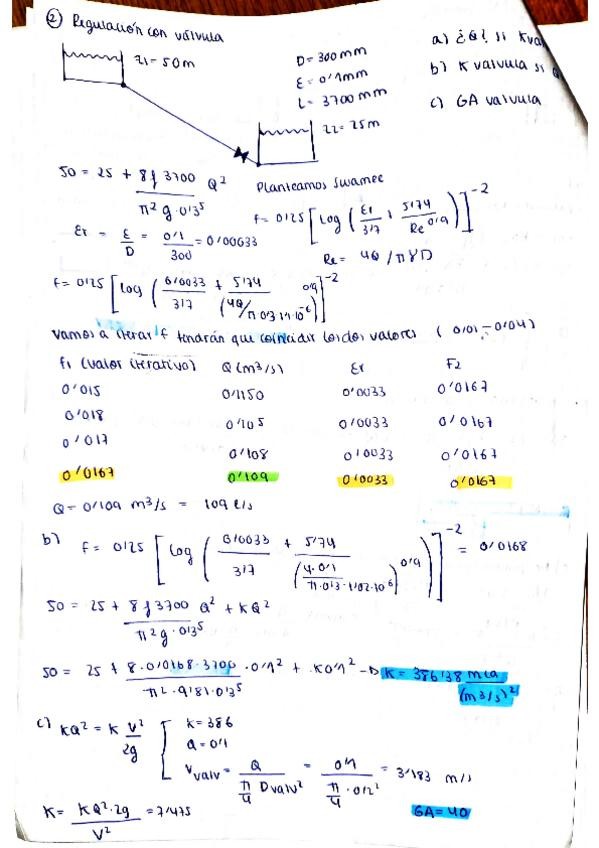 ② Regulación con válvula
z1=50m
D=300mm
ε=0'1mm
L=3700mm
z2=25m
a) ¿Q? si Kval
b) K valvula si Q
c) GA valvula
50 = 25 + 8f 3700 / π² g·0'3⁵ Q²
Planteamos Swamee
f= 0'25 [log (εr/3'7 + 5'74/Re^0'9)]^-2
εr = ε/D = 0'1/300 = 0'00033
Re= 4Q/πνD
f= 0'25 [log (0'0033/3'7 + 5'74/(4Q/π·0'3·1'1·10^-6)^0'9)]^-2
Vamos a iterar f tendrán que coincidir los dos valores (0'01-0'04)
f1 (valor iterativo) Q(m³/s) εr F2
0'015 0'1150 0'0033 0'0167
0'018 0'105 0'0033 0'0167
0'017 0'108 0'0033 0'0167
0'0167 0'109 0'0033 0'0167
Q=0'109 m³/s = 109 l/s
b) f= 0'25 [log (0'0033/3'7 + 5'74/(4·0'1/π·0'3·1'02·10^-6)^0'9)]^-2 = 0'0168
50 = 25 + 8f 3700/π² g·0'3⁵ Q² + KQ²
50 = 25 + 8·0'0168·3700/π²·9'81·0'3⁵ ·0'1² + K0'1² → K = 386'38 mca/(m3/s)²
c) KQ² = K V²/2g
K=386
Q=0'1
Vvalv = Q/(π/4 Dvalv²) = 0'1/(π/4 ·0'2²) = 3'183 m/s
K= KQ²·2g/V² = 7'475
GA=40